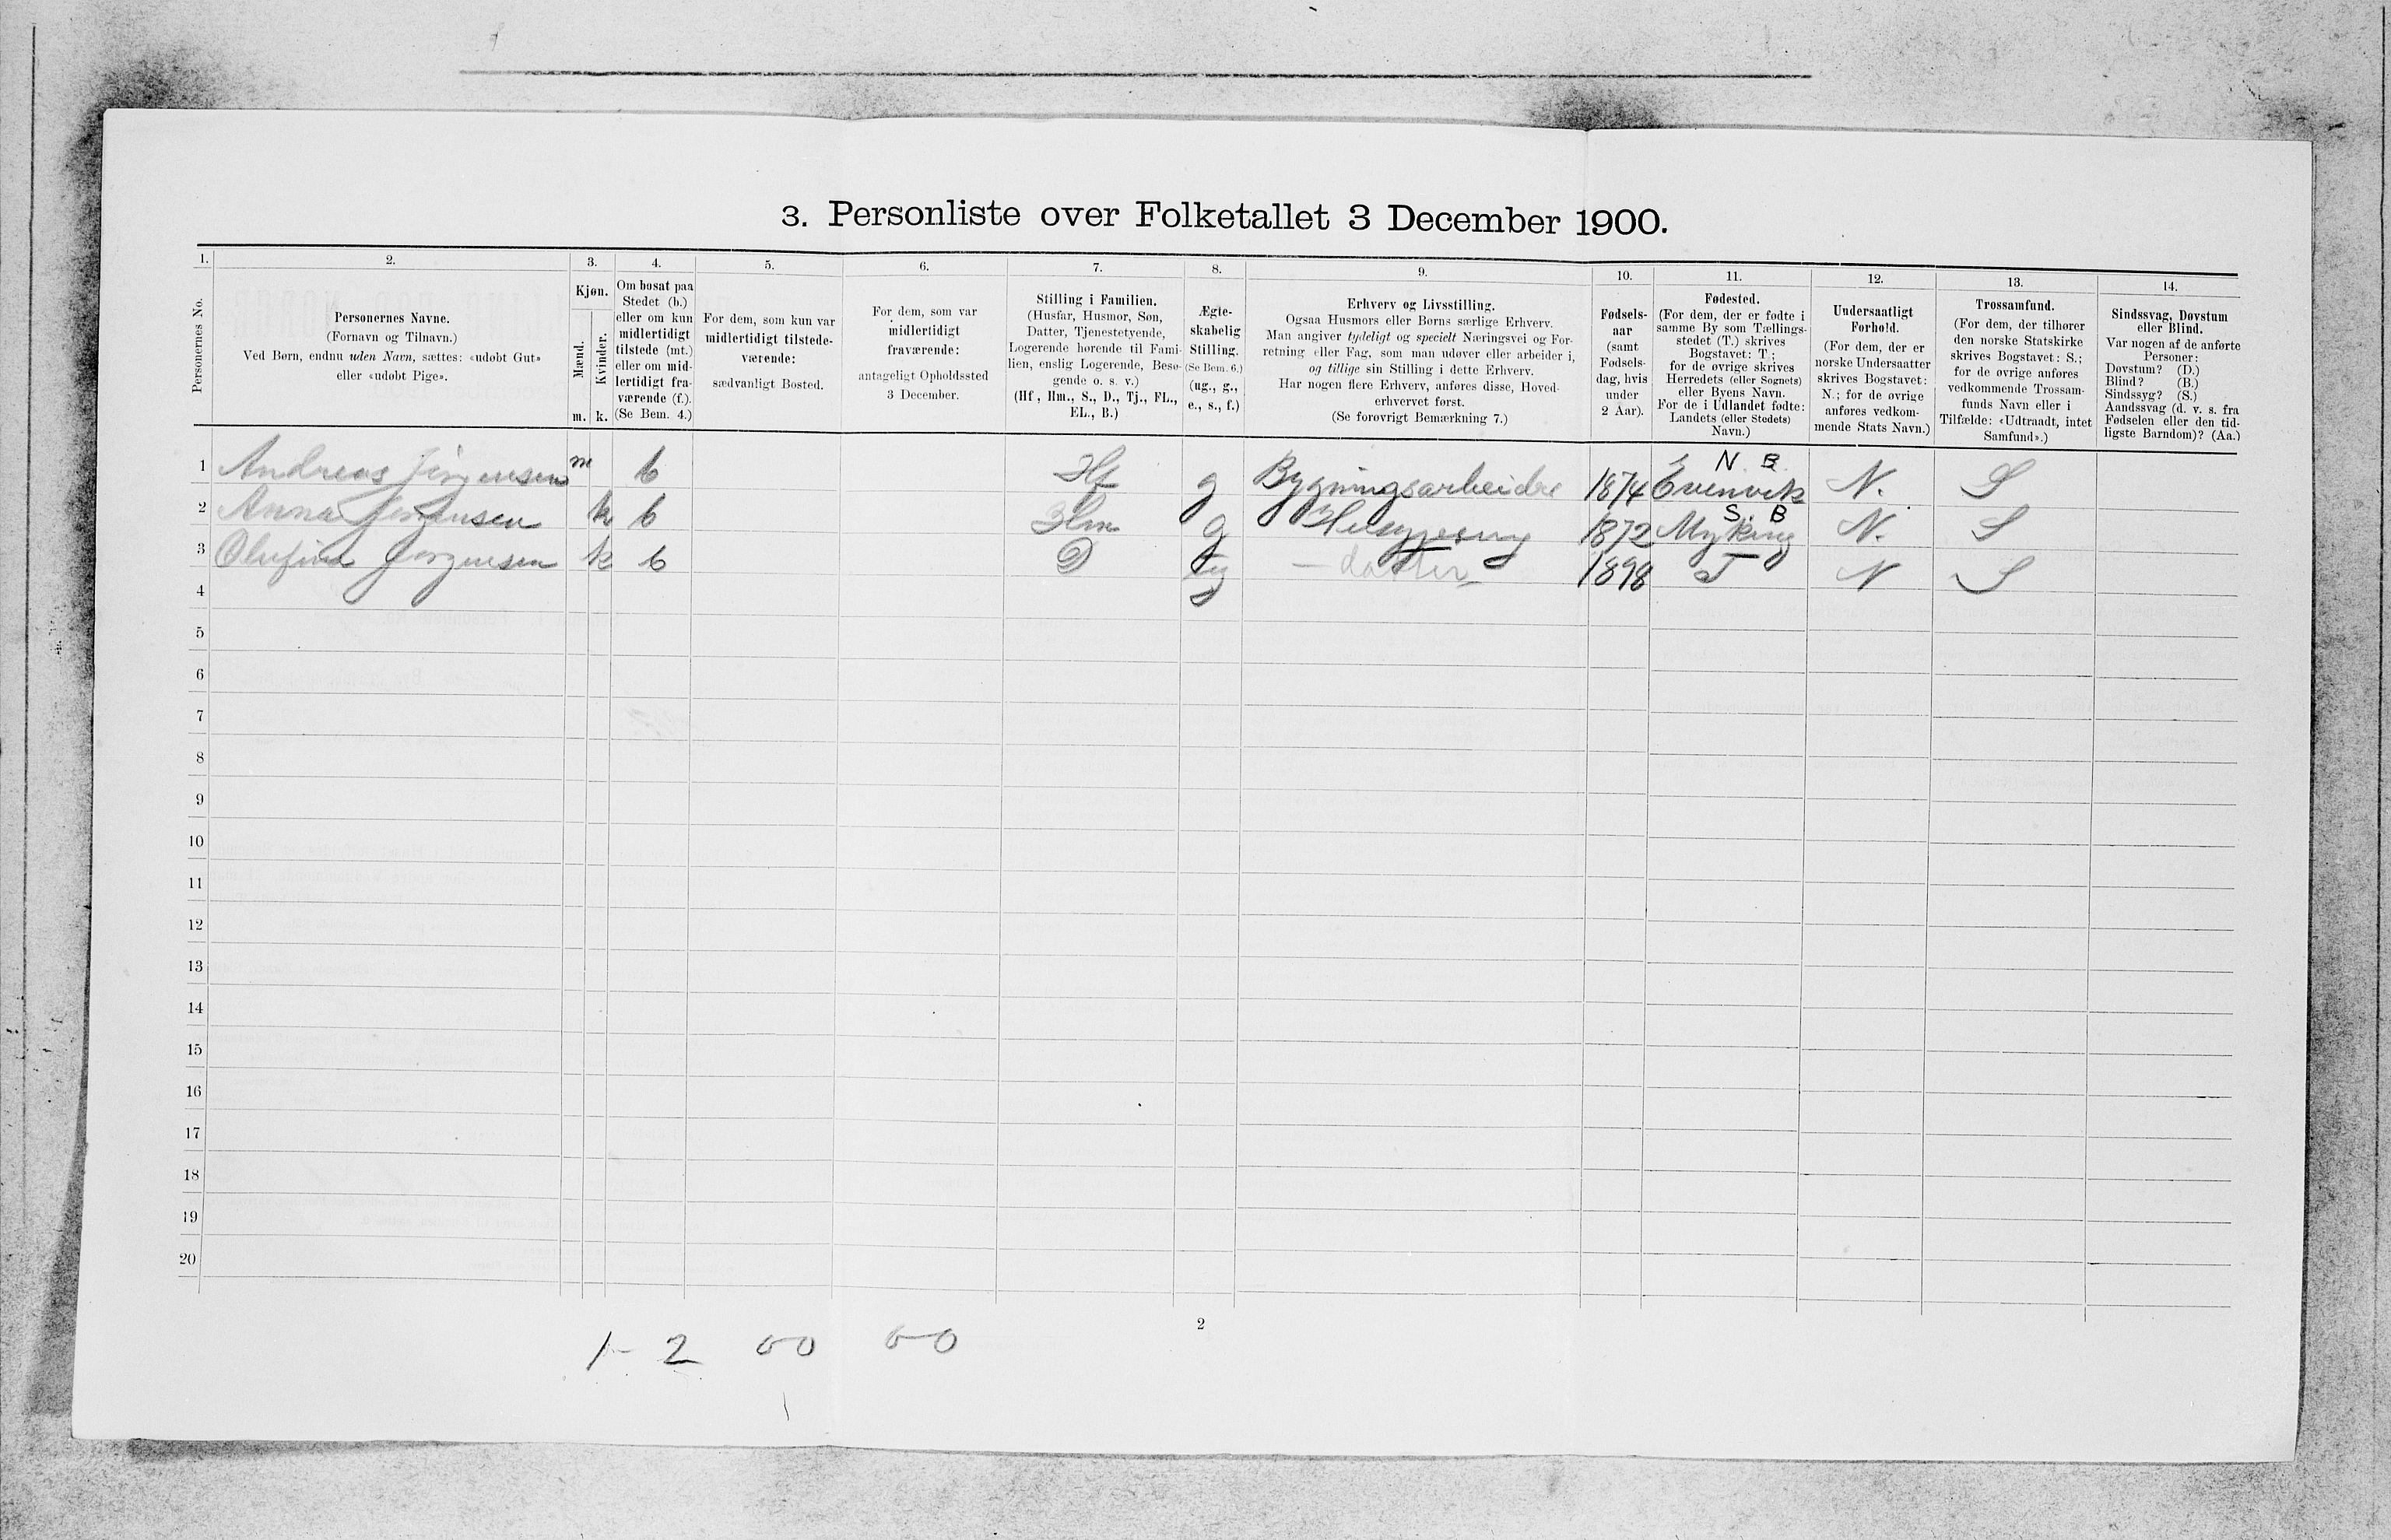 3. Personliste over Folketallet 3 December 1900.
1. 2. 3. 4. 5. 6. 7. 8. 9. 10. 11. 12. 13. 14.
Personernes No.
Personernes Navne.
(Fornavn og Tilnavn.)
Ved Børn, endnu uden Navn, sættes: «udøbt Gut»
eller «udøbt Pige».
Kjøn.
Mænd.
Kvinder.
m. k.
Om bosat paa
Stedet (b.)
eller om kun
midlertidigt
tilstede (mt.)
eller om mid-
lertidigt fra-
værende (f.).
(Se Bem. 4.)
For dem, som kun var
midlertidigt tilstede-
værende:
sædvanligt Bosted.
For dem, som var
midlertidigt
fraværende:
antageligt Opholdssted
3 December.
Stilling i Familien.
(Husfar, Husmor, Søn,
Datter, Tjenestetyende,
Logerende hørende til Fami-
lien, enslig Logerende, Besø-
gende o. s. v.)
(Hf., Hm., S., D., Tj., FL.,
EL., B.)
Ægte-
skabelig
Stilling.
(Se Bem. 6.)
(ug., g.,
e., s., f.)
Erhverv og Livsstilling.
Ogsaa Husmors eller Børns særlige Erhverv.
Man angiver tydeligt og specielt Næringsvei og For-
retning eller Fag, som man udøver eller arbeider i,
og tillige sin Stilling i dette Erhverv.
Har nogen flere Erhverv, anføres disse, Hoved-
erhvervet først.
(Se forøvrigt Bemærkning 7.)
Fødsels-
aar
(samt
Fødsels-
dag, hvis
under
2 Aar).
Fødested.
(For dem, der er fødte i
samme By som Tællings-
stedet (T.) skrives
Bogstavet: T.;
for de øvrige skrives
Herredets (eller Sognets)
eller Byens Navn.
For de i Udlandet fødte:
Landets (eller Stedets)
Navn.)
Undersaatligt
Forhold.
(For dem, der er
norske Undersaatter
skrives Bogstavet:
N.; for de øvrige
anføres vedkom-
mende Stats Navn.)
Trossamfund.
(For dem, der tilhører
den norske Statskirke
skrives Bogstavet: S.;
for de øvrige anføres
vedkommende Trossam-
funds Navn eller i
Tilfælde: «Udtraadt, intet
Samfund».)
Sindssvag, Døvstum
eller Blind.
Var nogen af de anførte
Personer:
Døvstum? (D.)
Blind? (B.)
Sindssyg? (S.)
Aandssvag (d. v. s. fra
Fødselen eller den tid-
ligste Barndom)? (Aa.)
N. B.
1 Andreas Jörgensen m b Hf g Bygningsarbeider 1874 Evenvik N. S
S. B
2 Anna Jørgensen k b Hm g Husgjerning 1872 Myking N. S
3 Olufina Jorgensen k b D ug – datter 1898 T N S
4
5
6
7
8
9
10
11
12
13
14
15
16
17
18
19
20
2
1 - 2 0-0 0-0